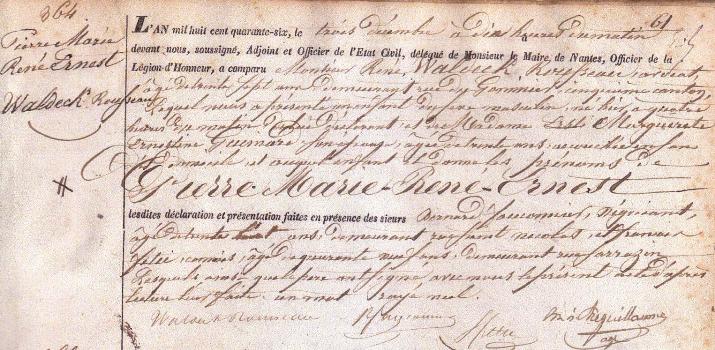 364
Pierre Marie
René Ernest
Waldeck Rousseau
61
L'AN mil huit cent quarante-six, le trois décembre à dix heures du matin
devant nous, soussigné, Adjoint et Officier de l'Etat Civil, délégué de Monsieur le Maire, de Nantes, Officier de la
Légion-d'Honneur, a comparu Monsieur René, Waldeck, Rousseau, avocat,
âgé de trente sept ans demeurant rue du cinquième canton,
lequel nous a présenté un enfant du sexe masculin, né hier à quatre
heures du matin, de lui déclarant et de Madame Marguerite
Ernestine Guimard, son épouse, âgée de trente ans, accouchée en son
domicile et auquel enfant il donne les prénoms de
Pierre-Marie-René-Ernest
lesdites déclaration et présentation faites en présence des sieurs Bernard négociant,
âgé de trente ans, demeurant rue Saint Nicolas, et François
commis, âgé de quarante neuf ans, demeurant rue
Lesquels ainsi que le père ont signé avec nous le présent acte après
lecture leur faite. un mot rayé nul.
Waldeck Rousseau